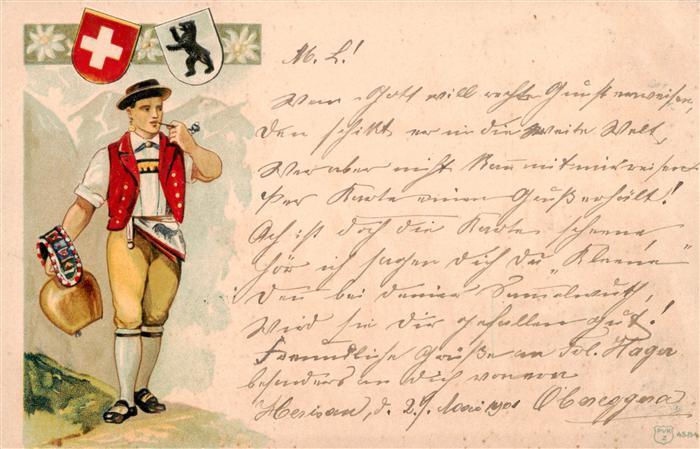 M. L.!
Wem Gott will rechte Gunst erweisen,
den schikt er in die weite Welt,
Wer aber nicht kann mit mir reisen
Per Karte einen Gruß erhält!
Ach ist doch die Karte scheene,
hör ich sagen dich du "Kleene"
Den bei deiner Sammelwuth,
Wird sie dir gefallen gut!
Freundliche Grüße an Fol. Hager
besonders an dich von
Herisau, d. 27. Mai 1901
PVK Z 4584